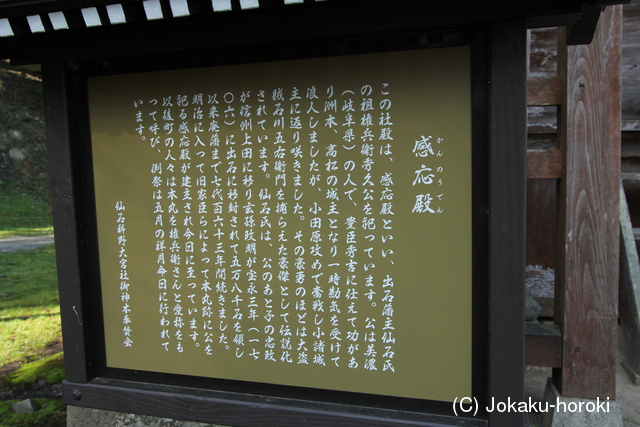 感応殿
かんのうでん
この社殿は、感応殿といい、出石藩主仙石氏
の祖権兵衛秀久公を祀っています。公は美濃
(岐阜県)の人で、豊臣秀吉に仕えて功があ
り洲本、高松の城主となり一時勘気を受けて
浪人しましたが、小田原攻めで奮戦し小諸城
主に返り咲きました。その豪勇のほどは大盗
賊石川五右衛門を捕らえた豪傑として伝説化
されています。仙石氏は、公のあと子の忠政
が信州上田に移り玄孫政明が宝永三年(一七
〇六)に出石に移封されて五万八千石を領し
以来廃藩まで七代百六十三年間続きました。
明治に入って旧家臣らによって本丸跡に公を
祀る感応殿が建立され今日に至っています。
以後町の人々は本丸を権兵衛さんと愛称をも
って呼び、例祭は五月の祥月命日に行われて
います。
仙石
(C) Jokaku-horoki